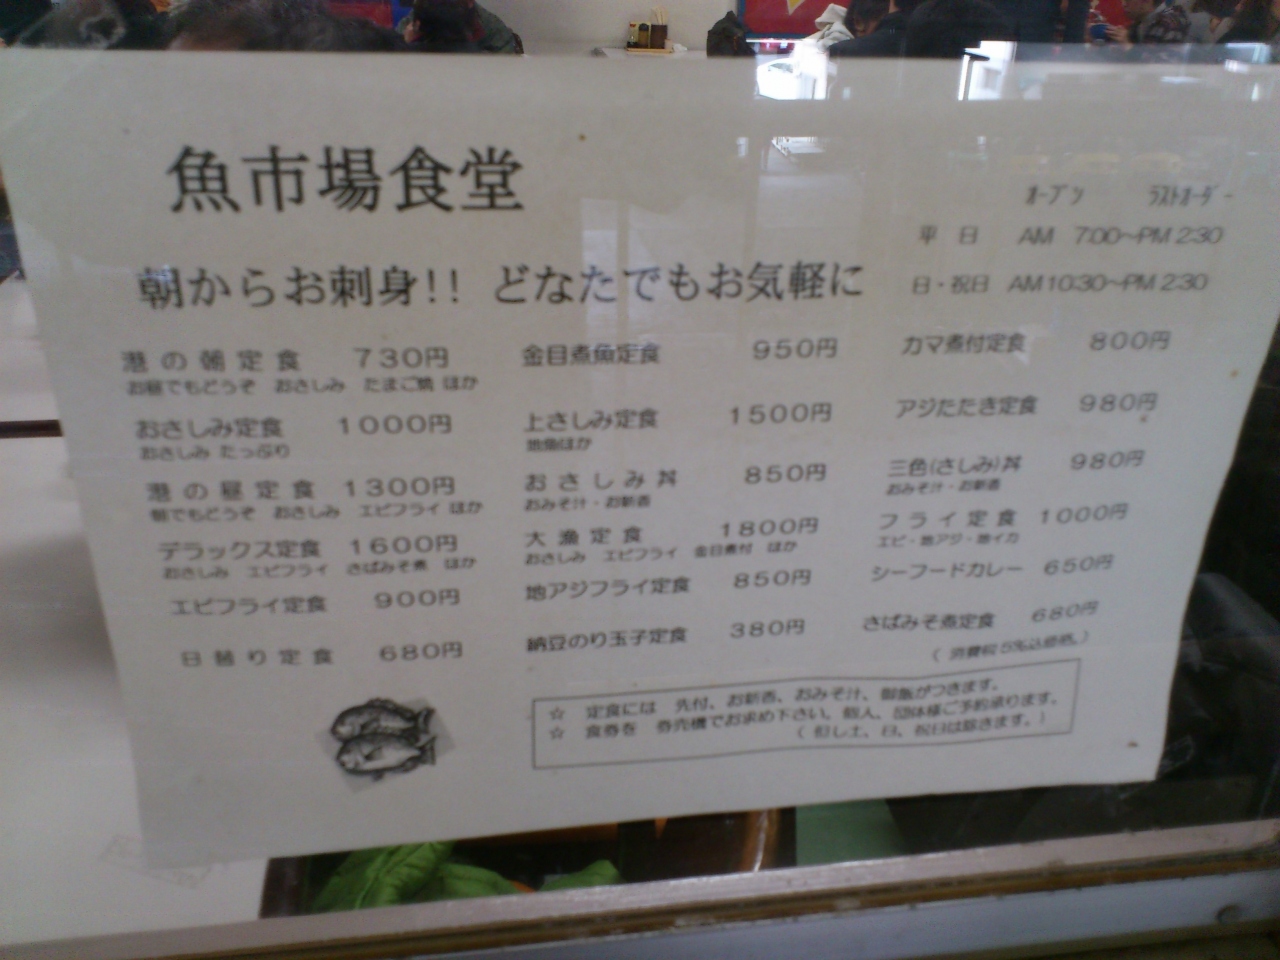 魚市場食堂
朝からお刺身!! どなたでもお気軽に
オープン ラストオーダー
平 日 AM 7:00~PM 2:30
日・祝日 AM10:30~PM 2:30
港の朝定食 730円
お昼でもどうぞ おさしみ たまご焼 ほか
おさしみ定食 1000円
おさしみ たっぷり
港の昼定食 1300円
朝でもどうぞ おさしみ エビフライ ほか
デラックス定食 1600円
おさしみ エビフライ さばみそ煮 ほか
エビフライ定食 900円
日替り定食 680円
金目煮魚定食 950円
上さしみ定食 1500円
地魚ほか
おさしみ丼 850円
おみそ汁・お新香
大漁定食 1800円
おさしみ エビフライ 金目煮付 ほか
地アジフライ定食 850円
納豆のり玉子定食 380円
カマ煮付定食 800円
アジたたき定食 980円
三色(さしみ)丼 980円
おみそ汁・お新香
フライ定食 1000円
エビ・地アジ・地イカ
シーフードカレー 650円
さばみそ煮定食 680円
( 消費税5%込価格。)
☆ 定食には 先付、お新香、おみそ汁、御飯がつきます。
☆ 食券を 券売機でお求め下さい。個人、団体様ご予約承ります。
( 但し土、日、祝日は除きます。)